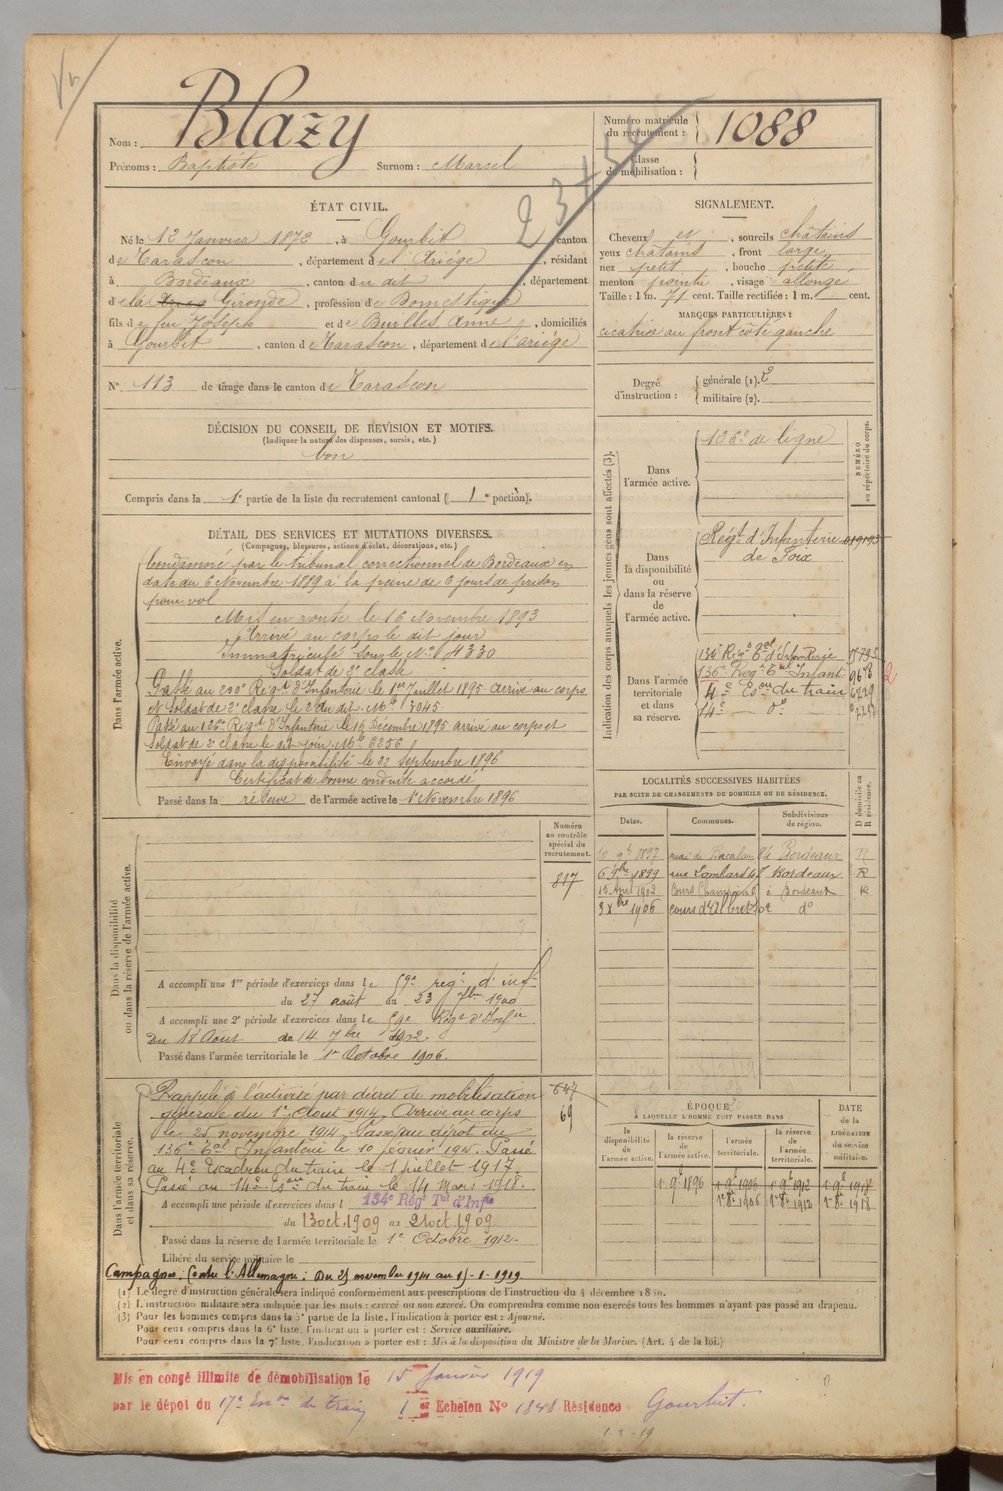 Nom : Blazy
Prénoms : Baptiste Surnom : Marcel
Numéro matricule du recrutement : 1088
Classe de mobilisation :
ÉTAT CIVIL.
Né le 12 Janvier 1872, à Gourbit, canton
de Tarascon, département de l'Ariège, résidant
à Bordeaux, canton du dit, département
de la Gironde, profession de Domestique
fils de feu Joseph et de Builles Anne, domiciliés
à Gourbit, canton de Tarascon, département de l'ariège
N° 113 de tirage dans le canton de Tarascon
SIGNALEMENT.
Cheveux et, sourcils châtains
yeux châtains, front large
nez petit, bouche petite
menton pointu, visage allongé
Taille : 1 m. 71 cent. Taille rectifiée : 1 m. cent.
MARQUES PARTICULIÈRES :
cicatrice au front côté gauche
Degré d'instruction : générale (1). 2
militaire (2).
DÉCISION DU CONSEIL DE REVISION ET MOTIFS.
(Indiquer la nature des dispenses, sursis, etc.)
bon
Compris dans la 1e partie de la liste du recrutement cantonal (1e portion).
DÉTAIL DES SERVICES ET MUTATIONS DIVERSES.
(Campagnes, blessures, actions d'éclat, décorations, etc.)
Dans l'armée active.
Condamné par le tribunal correctionnel de Bordeaux en
date du 6 Novembre 1889 à la peine de 6 jours de prison
pour vol
Mis en route le 16 Novembre 1893
Arrivé au corps le dit jour
Immatriculé sous le N° 4330
Soldat de 2e classe
Passé au 200e Régt d'Infanterie le 1er Juillet 1895 arrivé au corps
et Soldat de 2e classe le 2 du dit. Mle 3045
Passé au 126e Régt d'Infanterie le 16 Décembre 1895 arrivé au corps et
Soldat de 2e classe le dit jour. Mle 6256
Envoyé dans la disponibilité le 22 Septembre 1896
Certificat de bonne conduite accordé
Passé dans la réserve de l'armée active le 1er Novembre 1896
Indication des corps auxquels les jeunes gens sont affectés (3).
NUMÉRO au répertoire du corps.
Dans l'armée active.
126e de ligne
Dans la disponibilité ou dans la réserve de l'armée active.
Régt d'Infanterie
de Foix
Dans l'armée territoriale et dans sa réserve.
134e Régt Tal d'Infanterie
136e Régt Tal Infant.
4e Eson du train
14e do
LOCALITÉS SUCCESSIVES HABITÉES
PAR SUITE DE CHANGEMENTS DE DOMICILE OU DE RÉSIDENCE.
Dates. Communes. Subdivisions de région. D domicile ou R résidence.
1897 quai de Bacalan Bordeaux R
6 9bre 1899 rue Lombard Bordeaux R
15 Avril 1902 Cours à Bordeaux R
3 Xbre 1906 cours d'Albret do
Dans la disponibilité ou dans la réserve de l'armée active.
Numéro au contrôle spécial du recrutement.
817
A accompli une 1re période d'exercices dans le 59e régt d'inf
du 27 août au 23 7bre 1900
A accompli une 2e période d'exercices dans le 59e Régt d'Infie
Du 18 Aout au 14 7bre 1902
Passé dans l'armée territoriale le 1er Octobre 1906.
Dans l'armée territoriale et dans sa réserve.
647
69
Rappelé à l'activité par décret de mobilisation
générale du 1er Aout 1914. Arrivé au corps
le 25 novembre 1914. Passé au dépôt du
136e Tal Infanterie le 10 février 191. Passé
au 4e Escadron du train le 1 juillet 1917.
Passé au 14e Eson du train le 14 Mars 1918.
A accompli une période d'exercices dans l 134e Régt Tal d'Infie
du 13 oct. 1909 au 21 oct. 1909
Passé dans la réserve de l'armée territoriale le 1er Octobre 1912.
Libéré du service militaire le
Campagnes : Contre l'Allemagne : Du 25 novembre 1914 au 15-1-1919
ÉPOQUE
A LAQUELLE L'HOMME DOIT PASSER DANS
DATE de la LIBÉRATION du service militaire.
la disponibilité de l'armée active. la réserve de l'armée active. l'armée territoriale. la réserve de l'armée territoriale.
1 9e 1896 1 9e 1906 1 9e 1912 1 9e 1918
1 8e 1906 1 8e 1912 1 8e 1918
(1) Le degré d'instruction générale sera indiqué conformément aux prescriptions de l'instruction du 4 décembre 1889.
(2) L'instruction militaire sera indiquée par les mots : exercé ou non exercé. On comprendra comme non exercés tous les hommes n'ayant pas passé au drapeau.
(3) Pour les hommes compris dans la 5e partie de la liste, l'indication à porter est : Ajourné.
Pour ceux compris dans la 6e liste, l'indication à porter est : Service auxiliaire.
Pour ceux compris dans la 7e liste, l'indication à porter est : Mis à la disposition du Ministre de la Marine. (Art. 4 de la loi.)
Mis en congé illimité de démobilisation le 15 Janvier 1919
par le dépôt du 17e Eson du train 1er Echelon N° 1848 Résidence Gourbit.